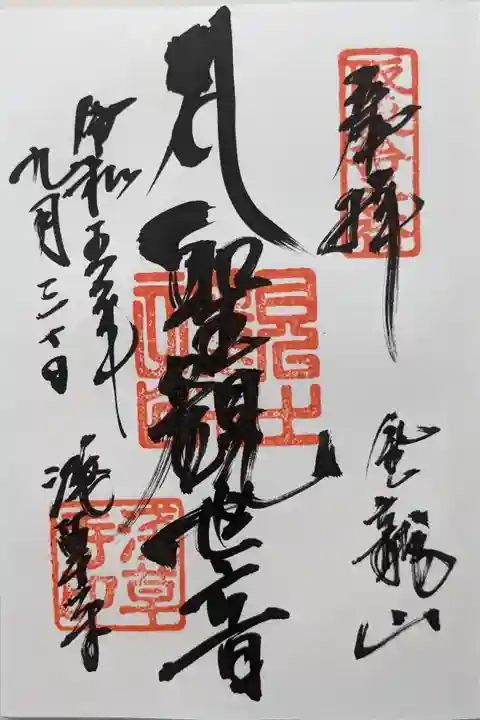 奉拝
金龍山
聖観世音
令和五年
九月三十日
浅草寺
浅草寺印